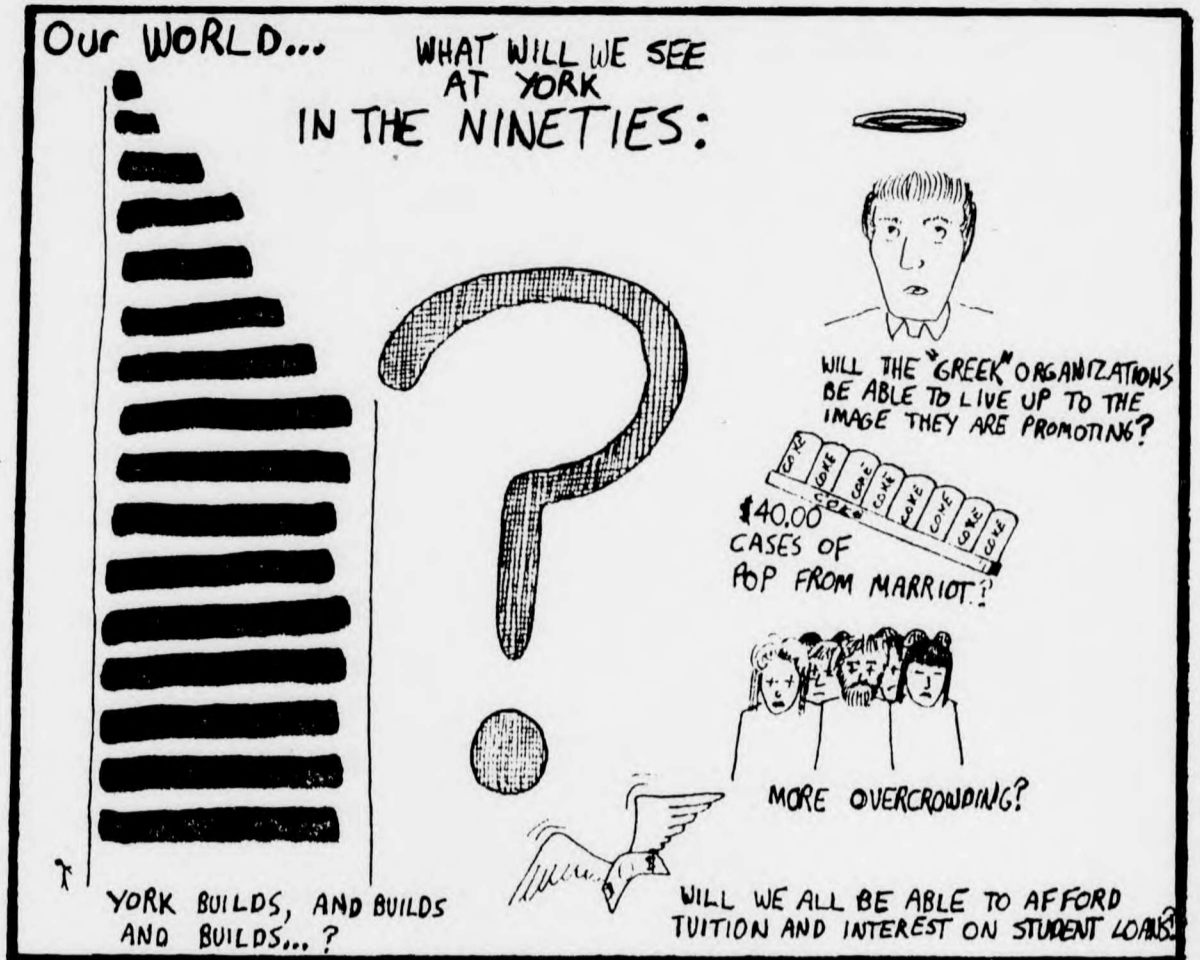 Our WORLD...
WHAT WILL WE SEE
AT YORK
IN THE NINETIES:
WILL THE "GREEK" ORGANIZATIONS
BE ABLE TO LIVE UP TO THE
IMAGE THEY ARE PROMOTING?
COKE COKE COKE COKE COKE COKE COKE COKE
COKE
$40.00
CASES OF
POP FROM MARRIOT?
MORE OVERCROWDING?
$
YORK BUILDS, AND BUILDS
AND BUILDS...?
WILL WE ALL BE ABLE TO AFFORD
TUITION AND INTEREST ON STUDENT LOANS?